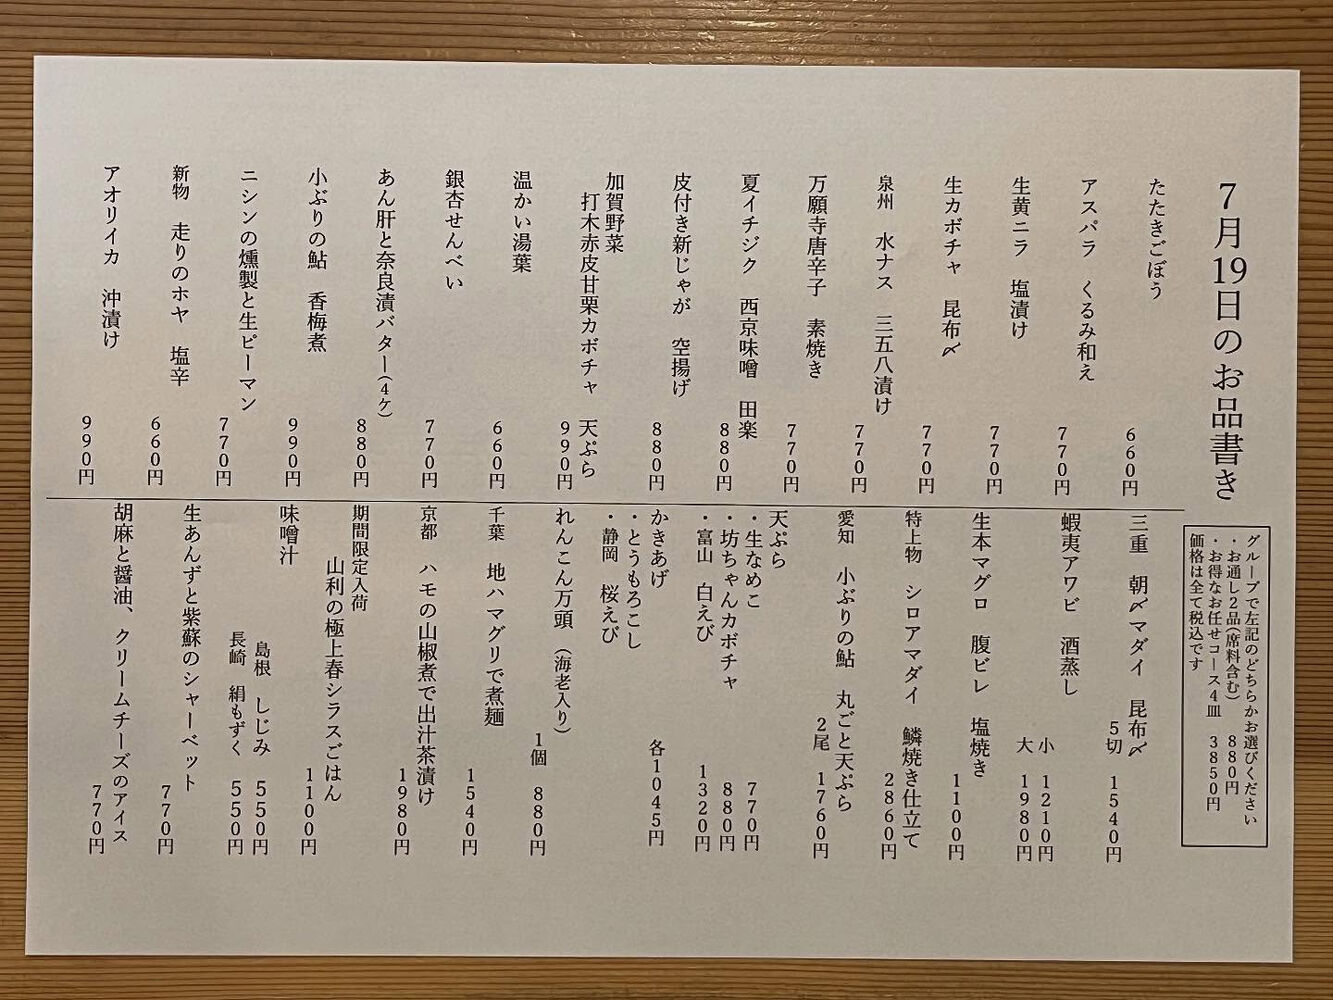 7月19日のお品書き
たたきごぼう
660円
アスパラ くるみ和え
770円
生黄ニラ 塩漬け
770円
生カボチャ 昆布〆
770円
泉州 水ナス 三五八漬け
770円
万願寺唐辛子 素焼き
770円
夏イチジク 西京味噌 田楽
880円
皮付き新じゃが 空揚げ
880円
加賀野菜
打木赤皮甘栗カボチャ 天ぷら
990円
温かい湯葉
660円
銀杏せんべい
770円
あん肝と奈良漬バター(4ケ)
880円
小ぶりの鮎 香梅煮
990円
ニシンの燻製と生ピーマン
770円
新物 走りのホヤ 塩辛
660円
アオリイカ 沖漬け
990円
グループで左記のどちらかお選びください
・お通し2品(席料含む) 880円
・お得なお任せコース4皿 3850円
価格は全て税込です
三重 朝〆マダイ 昆布〆
5切 1540円
蝦夷アワビ 酒蒸し
小 1210円
大 1980円
生本マグロ 腹ビレ 塩焼き
1100円
特上物 シロアマダイ 鱗焼き仕立て
2860円
愛知 小ぶりの鮎 丸ごと天ぷら
2尾 1760円
天ぷら
・生なめこ 770円
・坊ちゃんカボチャ 880円
・富山 白えび 1320円
かきあげ
・とうもろこし
・静岡 桜えび
各1045円
れんこん万頭(海老入り)
1個 880円
千葉 地ハマグリで煮麺
1540円
京都 ハモの山椒煮で出汁茶漬け
1980円
期間限定入荷
山利の極上春シラスごはん
1100円
味噌汁
島根 しじみ 550円
長崎 絹もずく 550円
生あんずと紫蘇のシャーベット
770円
胡麻と醤油、クリームチーズのアイス
770円